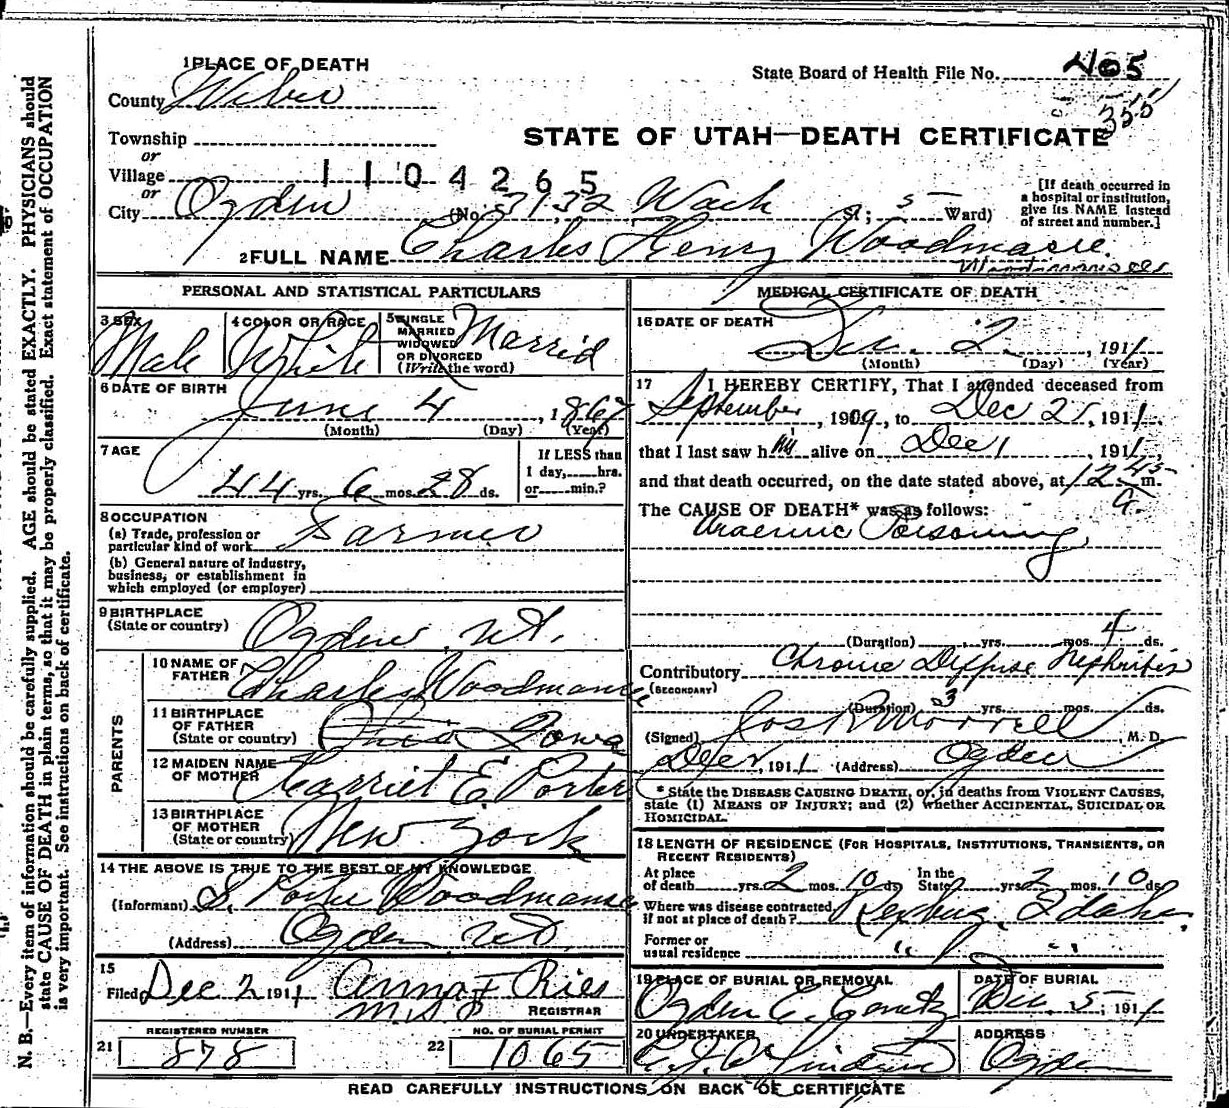 1 PLACE OF DEATH
State Board of Health File No. 405
County Weber
355
STATE OF UTAH—DEATH CERTIFICATE
Township
or
Village
1104265
or
City Ogden (No. 3132 Wash St; 5 Ward)
[If death occurred in a hospital or institution, give its NAME instead of street and number.]
2 FULL NAME Charles Henry Woodmansee
PERSONAL AND STATISTICAL PARTICULARS
3 SEX Male
4 COLOR OR RACE White
5 SINGLE MARRIED WIDOWED OR DIVORCED (Write the word) Married
6 DATE OF BIRTH
June 4, 1867
(Month) (Day) (Year)
7 AGE
44 yrs. 6 mos. 28 ds.
If LESS than 1 day, hrs. or min.?
8 OCCUPATION
(a) Trade, profession or particular kind of work Farmer
(b) General nature of industry, business, or establishment in which employed (or employer)
9 BIRTHPLACE
(State or country) Ogden, Ut.
PARENTS
10 NAME OF FATHER Charles Woodmansee
11 BIRTHPLACE OF FATHER (State or country) Ohio Iowa
12 MAIDEN NAME OF MOTHER Harriet E. Porter
13 BIRTHPLACE OF MOTHER (State or country) New York
14 THE ABOVE IS TRUE TO THE BEST OF MY KNOWLEDGE
(Informant) S. Porter Woodmansee
(Address) Ogden Ut.
15
Filed Dec 2 1911 Anna F Ries
REGISTRAR
REGISTERED NUMBER
21 878
NO. OF BURIAL PERMIT
22 1065
MEDICAL CERTIFICATE OF DEATH
16 DATE OF DEATH
Dec. 2, 1911
(Month) (Day) (Year)
17 I HEREBY CERTIFY, That I attended deceased from
September, 1909, to Dec 2, 1911.
that I last saw him alive on Dec 1 1911.
and that death occurred, on the date stated above, at 12 45 a. m.
The CAUSE OF DEATH* was as follows:
Uraemic Poisoning
(Duration) yrs. mos. 4 ds.
Contributory Chronic Diffuse Nephritis
(SECONDARY)
(Duration) 3 yrs. mos. ds.
(Signed) Jos R Morrell, M. D.
Dec 2, 1911 (Address) Ogden
* State the DISEASE CAUSING DEATH, or, in deaths from VIOLENT CAUSES, state (1) MEANS OF INJURY; and (2) whether ACCIDENTAL, SUICIDAL OR HOMICIDAL.
18 LENGTH OF RESIDENCE (FOR HOSPITALS, INSTITUTIONS, TRANSIENTS, OR RECENT RESIDENTS)
At place of death yrs. 2 mos. 10 ds. In the State yrs. 2 mos. 10 ds.
Where was disease contracted, if not at place of death? Rexburg, Idaho.
Former or usual residence " "
19 PLACE OF BURIAL OR REMOVAL
Ogden
DATE OF BURIAL
Dec. 5, 1911
20 UNDERTAKER
ADDRESS
Ogden
READ CAREFULLY INSTRUCTIONS ON BACK OF CERTIFICATE
N. B.—Every item of information should be carefully supplied. AGE should be stated EXACTLY. PHYSICIANS should
state CAUSE OF DEATH in plain terms, so that it may be properly classified. Exact statement of OCCUPATION
is very important. See instructions on back of certificate.